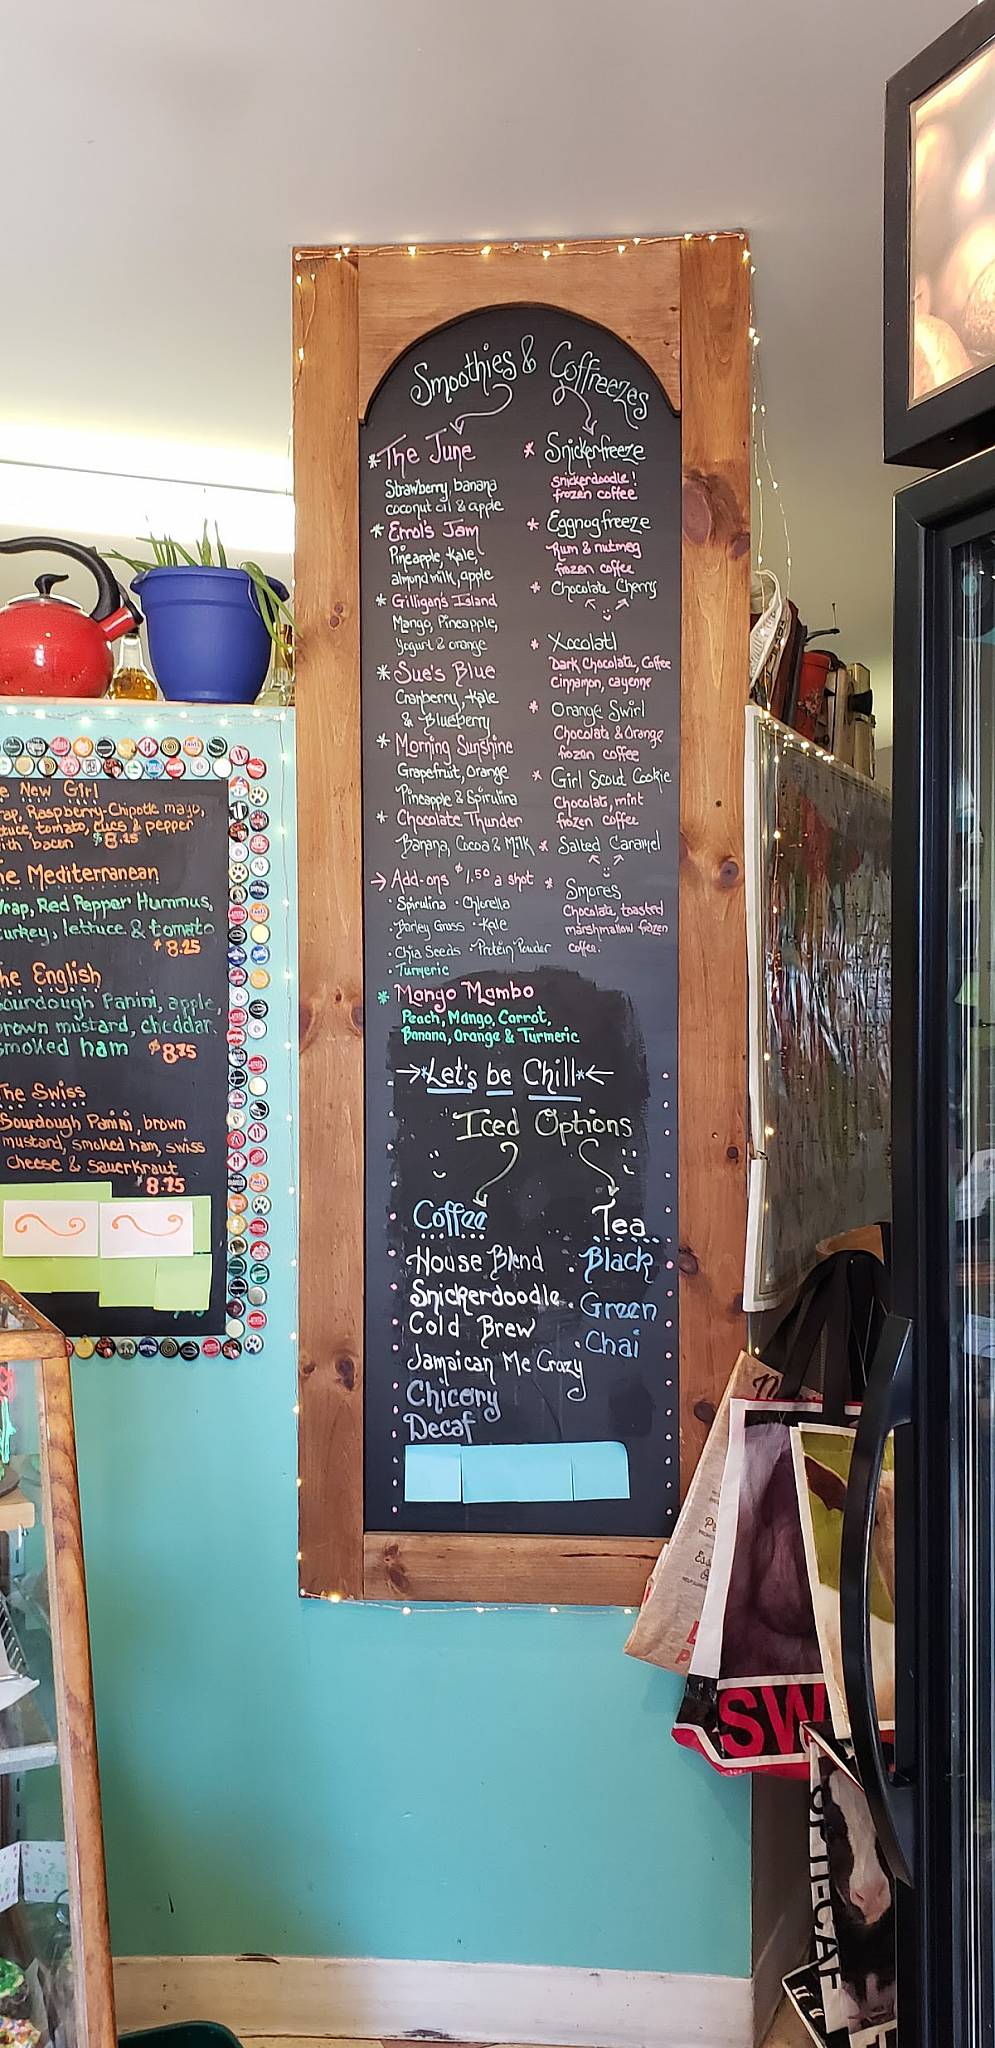 e New Girl
ap, Raspberry-Chipotle mayo,
tuce, tomato, cucs & pepper
ith bacon $8.25
he Mediterranean
Wrap, Red Pepper Hummus,
turkey, lettuce & tomato
$8.25
he English
Sourdough Panini, apple,
rown mustard, cheddar,
smoked ham $8.25
The Swiss
Sourdough Panini, brown
mustard, smoked ham, swiss
cheese & sauerkraut
$8.25
Smoothies & Coffreezes
*The June
Strawberry, banana
coconut oil & apple
* Errol's Jam
Pineapple, Kale,
almond milk, apple
* Gilligan's Island
Mango, Pineapple,
Yogurt & orange
*Sue's Blue
Cranberry, Kale
& Blueberry
* Morning Sunshine
Grapefruit, Orange
Pineapple & Spirulina
* Chocolate Thunder
Banana, Cocoa & Milk
→ Add-ons $1.50 a shot
· Spirulina · Chlorella
· Barley Grass · Kale
· Chia Seeds · Protein Powder
· Turmeric
* Snickerfreeze
snickerdoodle!
frozen coffee
* Eggnogfreeze
Rum & nutmeg
frozen coffee
* Chocolate Cherry
* Xocolatl
Dark Chocolate, Coffee
Cinnamon, cayenne
* Orange Swirl
Chocolate & Orange
frozen coffee
* Girl Scout Cookie
Chocolate, mint
frozen coffee
* Salted Caramel
* Smores
Chocolate, toasted
marshmallow frozen
coffee.
* Mango Mambo
Peach, Mango, Carrot,
Banana, Orange & Turmeric
→*Let's be Chill*←
Iced Options
Coffee
House Blend
Snickerdoodle
Cold Brew
Jamaican Me Crazy
Chicory
Decaf
Tea
· Black
· Green
· Chai
SW